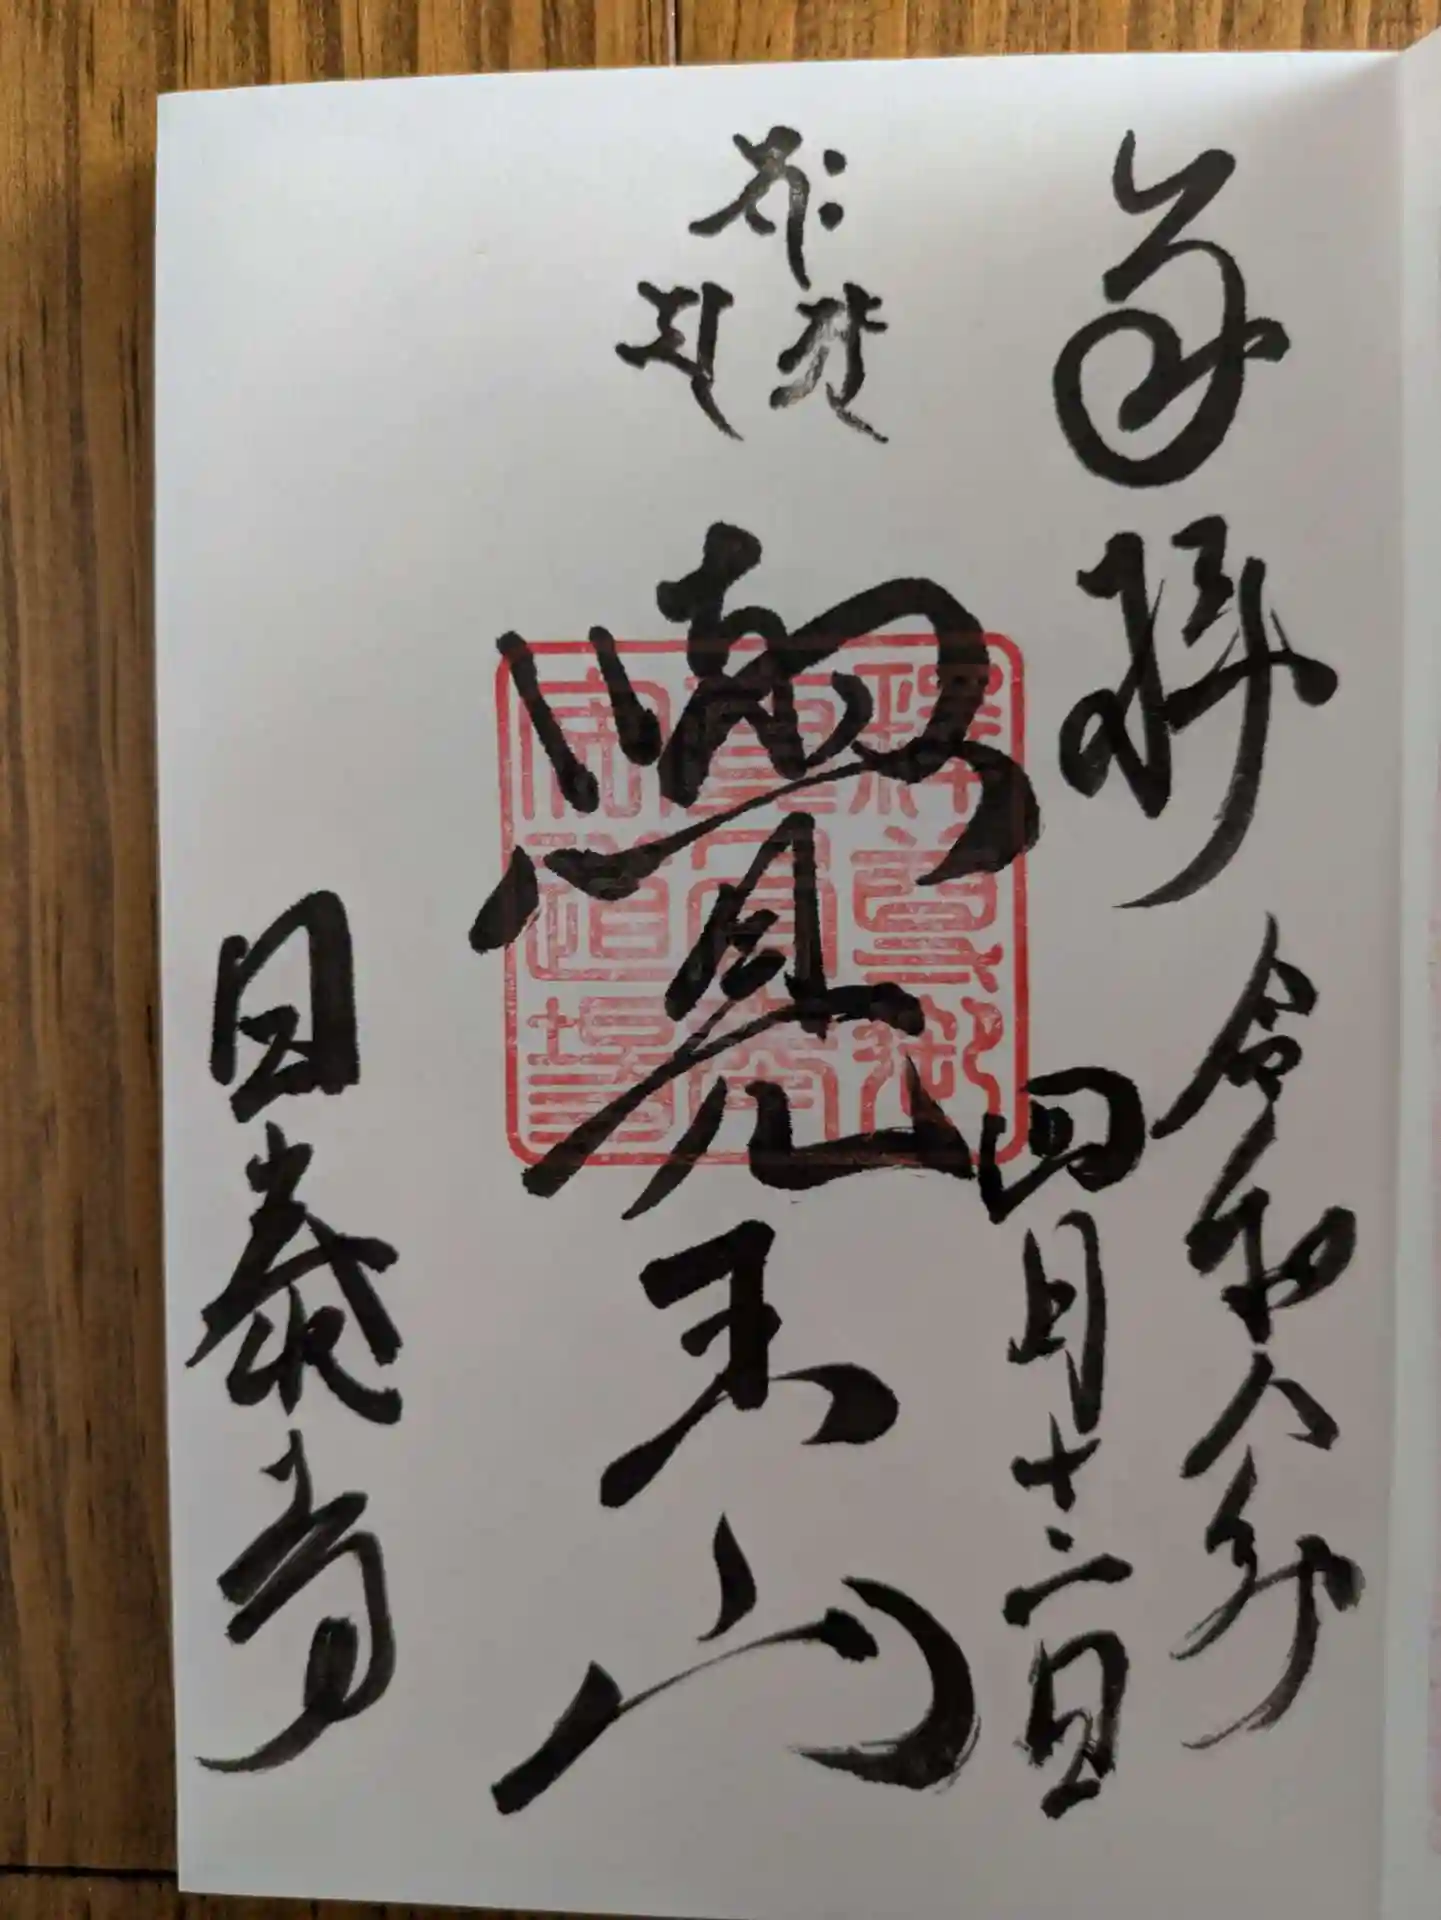 奉拝
令和八年
四月十二日
覺王山
釋尊御
真骨奉
安道場
日泰寺